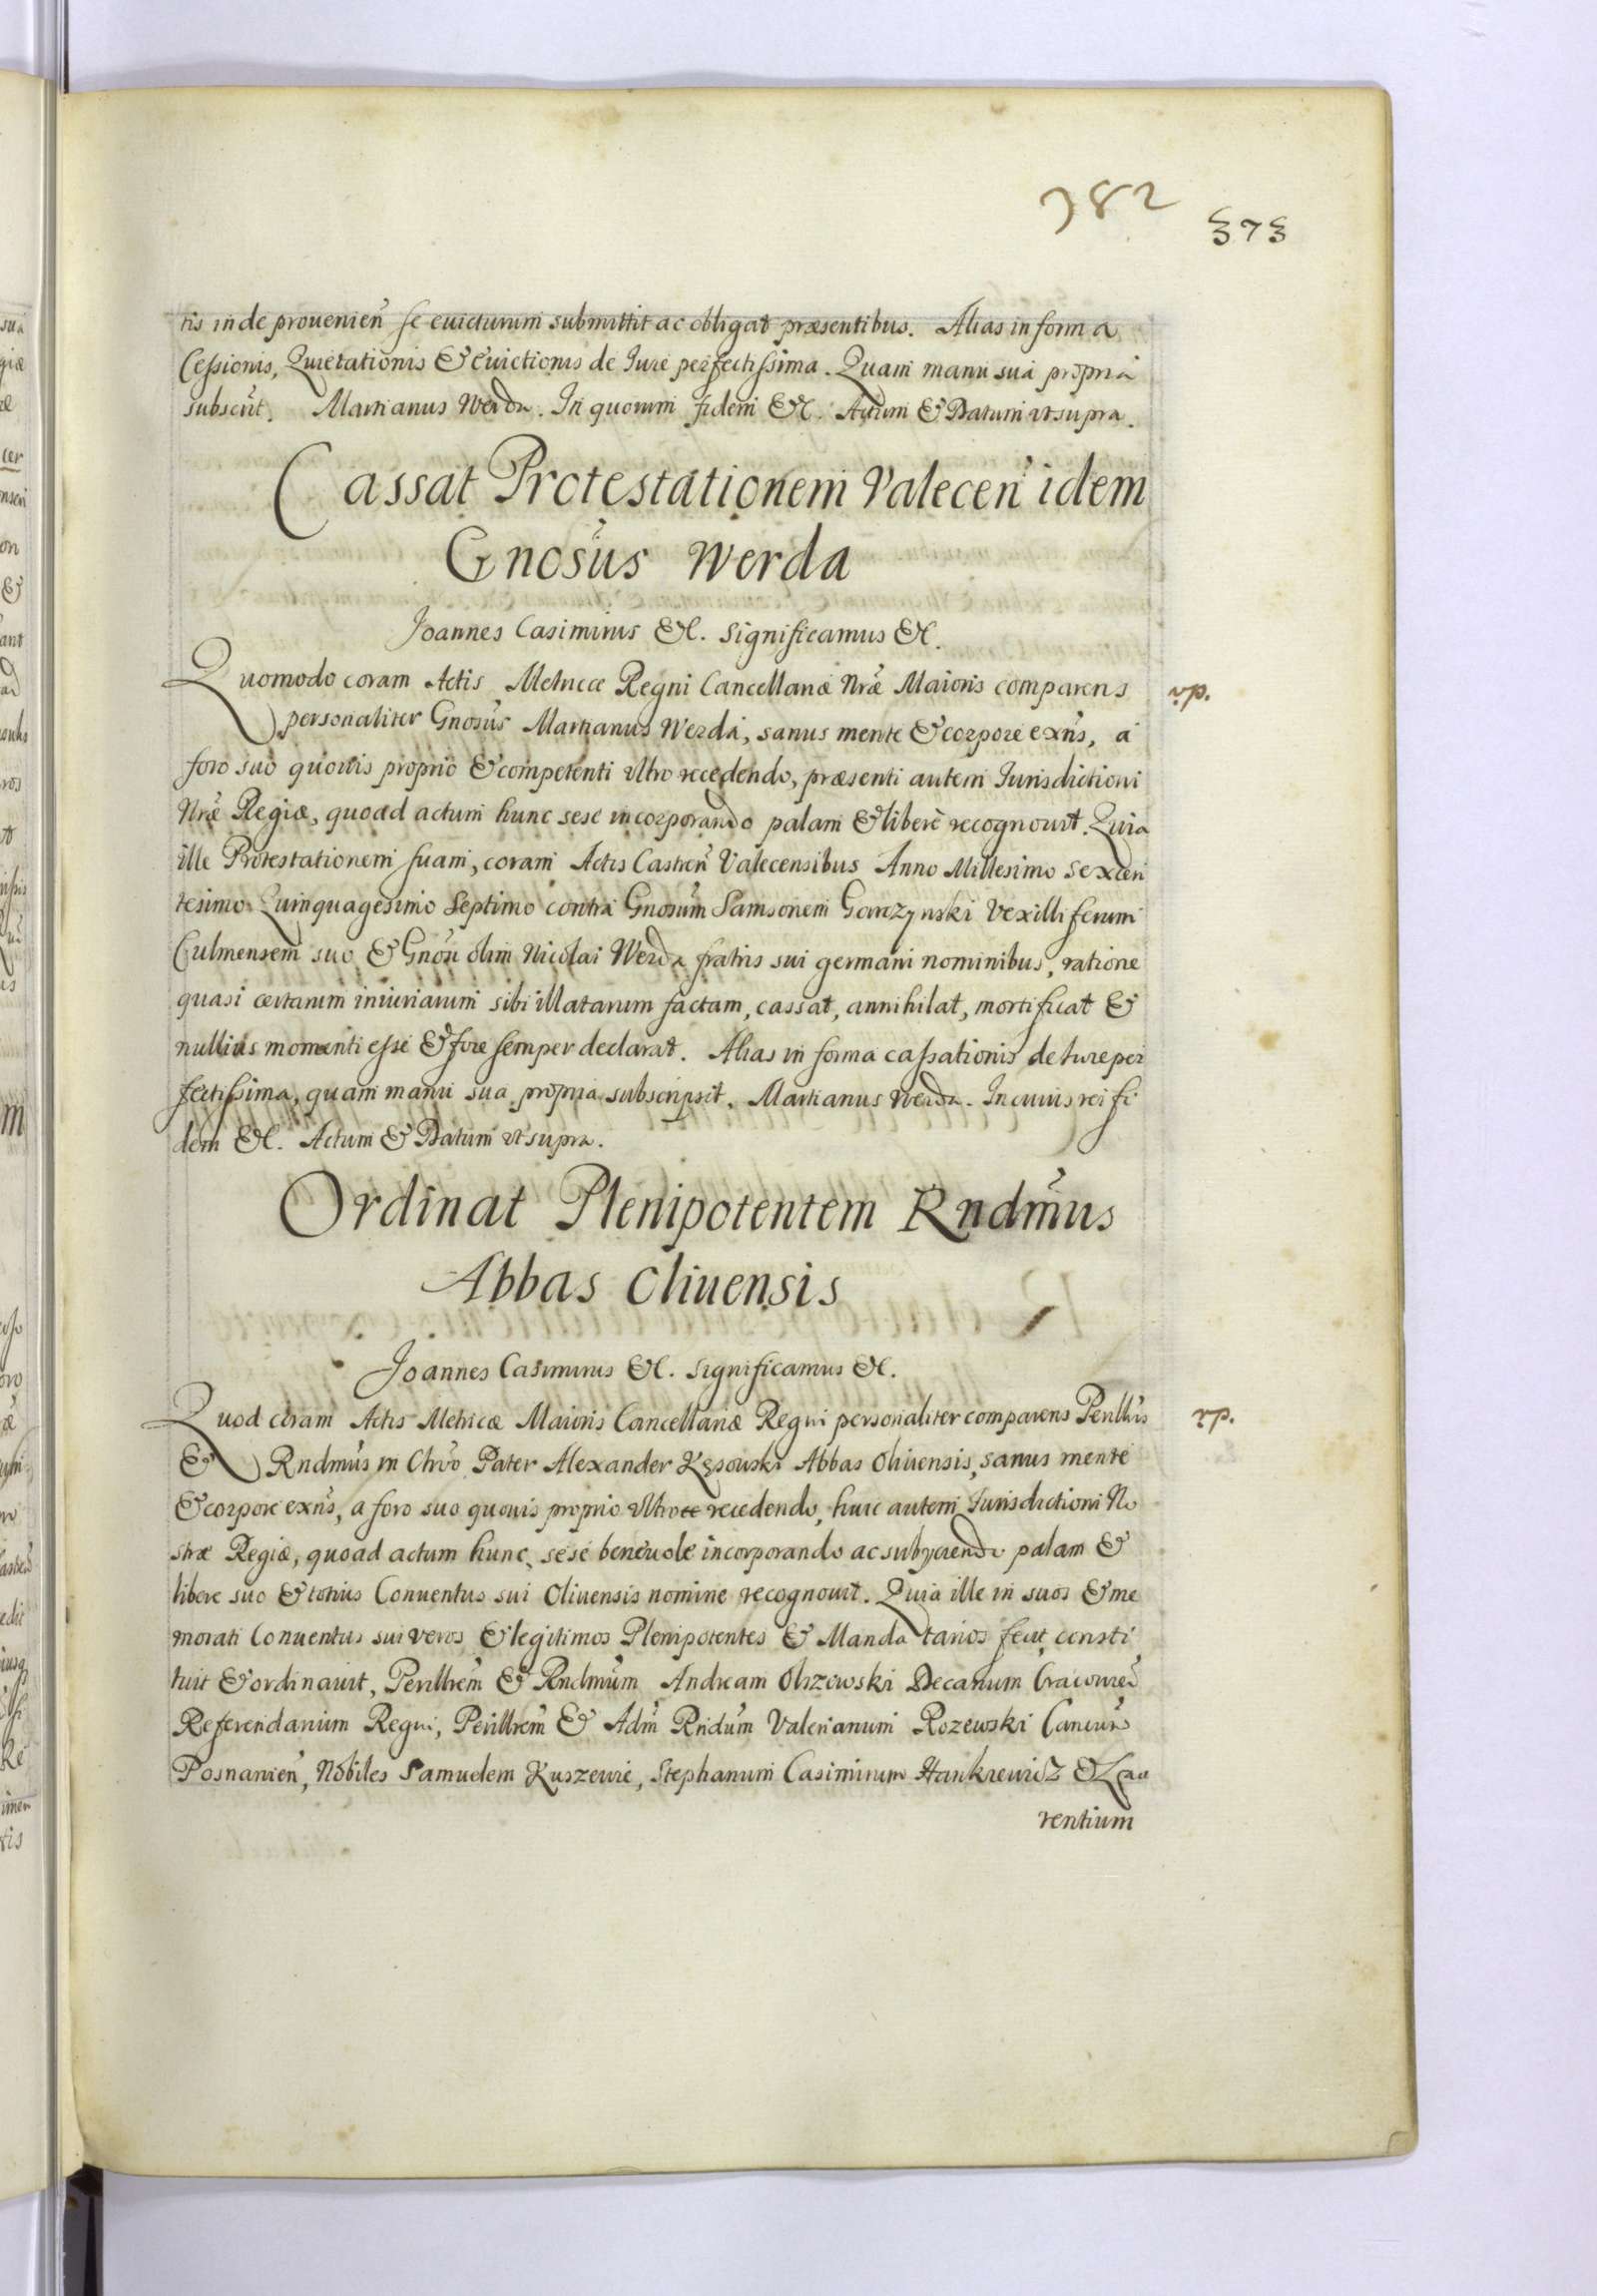 382
373
tis inde prouenień se euicturum submittit ac obligat præsentibus. Alias in forma
Cessionis, Quietationis & Euictionis de Iure perfectissima. Quam manu sua propria
subscr̃t. Martianus Werda. In quorum fidem &c. Actum & Datum ut supra.
Cassat Protestationem Valeceń idem
Gnosus Werda
Joannes Casimirus &c. Significamus &c.
Quomodo coram Actis Metricæ Regni Cancellariæ Nræ Maioris comparens
vp.
personaliter Gnosus Martianus Werda, sanus mente & corpore exñs, a
foro suo quouis proprio & competenti ultro recedendo, præsenti autem Iurisdictioni
Nræ Regiæ, quoad actum hunc sese incorporando palam & libere recognouit. Quia
ille Protestationem suam, coram Actis Castreń Valecensibus Anno Millesimo Sexcen
tesimo Quinquagesimo Septimo contra Gnosum Samsonem Gorczynski Vexilliferum
Culmensem suo & Gnosi olim Nicolai Werda fratris sui germani nominibus, ratione
quasi certarum iniuriarum sibi illatarum factam, cassat, annihilat, mortificat &
nullius momenti esse & fore semper declarat. Alias in forma cassationis de Iure per
fectissima, quam manu sua propria subscripsit. Martianus Werda. In cuius rei fi
dem &c. Actum & Datum ut supra.
Ordinat Plenipotentem Rndmus
Abbas Oliuensis
Joannes Casimirus &c. Significamus &c.
Quod coram Actis Metricæ Maioris Cancellariæ Regni personaliter comparens Perillris
rp.
& Rndmus in Chro Pater Alexander Kęsowski Abbas Oliuensis, sanus mente
& corpore exñs, a foro suo quouis proprio ultro recedendo, huic autem Iurisdictioni No
stræ Regiæ, quoad actum hunc, sese beneuole incorporando ac subijciendo palam &
libere suo & totius Conuentus sui Oliuensis nomine recognouit. Quia ille in suos & me
morati Conuentus sui veros & legitimos Plenipotentes & Mandatarios fecit, consti
tuit & ordinauit, Perillrem & Rndmum Andream Olszowski Decanum Cracouień
Referendarium Regni, Perillrem & Adm Rndum Valerianum Rozewski Cancum
Posnanień, Nobiles Samuelem Kuszewic, Stephanum Casimirum Hankiewicz & Lau
rentium